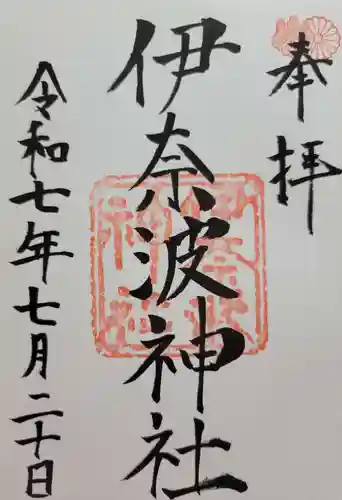 奉拝
伊奈波神社
令和七年七月二十日